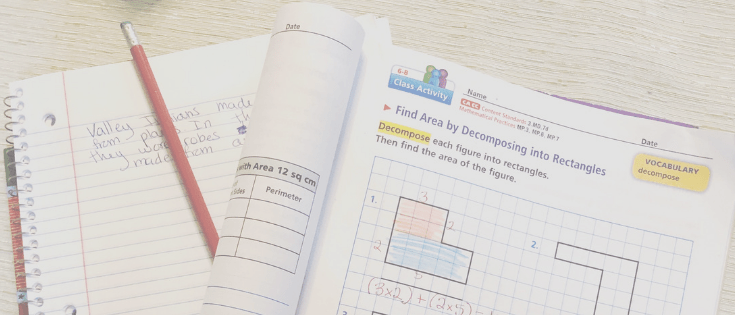 Date
Valley Indians made
hem plants In th
they wore robes
made them
with Area 12 sq cm
Perimeter
6-8
Class Activity
Name
CA CC Content Standards 3.MD.7d
Mathematical Practices MP.1, MP.6, MP.7
Date
Find Area by Decomposing into Rectangles
Decompose each figure into rectangles.
Then find the area of the figure.
VOCABULARY
decompose
1.
3
2
2
5
2.
(3x2) + (2x5)